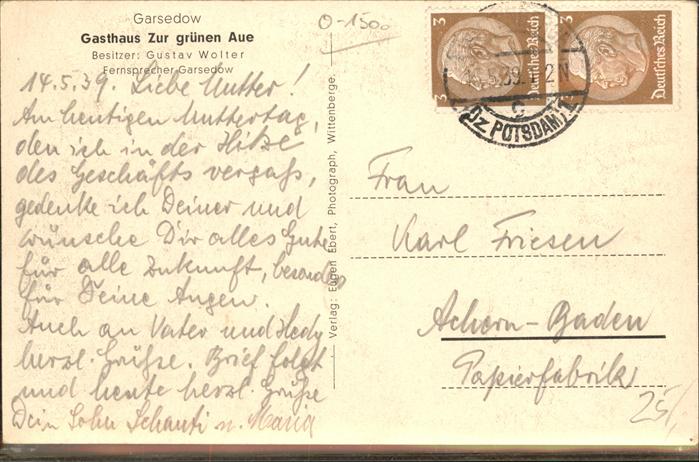 Garsedow
Gasthaus Zur grünen Aue
Besitzer: Gustav Wolter
Fernsprecher Garsedow
0-150
14.5.39. Liebe Mutter!
Am heutigen Muttertag,
den ich in der Hitze
des Geschäfts vergaß,
gedenke ich Deiner und
wünsche Dir alles Gute
für alle Zukunft, besonders
für Deine Augen.
Auch an Vater und Hedy
herzl. Grüße. Brief folgt
und heute herzl. Grüße
Dein Sohn u. Maria
Verlag: Eugen Ebert, Photograph, Wittenberge.
3 Deutsches Reich
3 Deutsches Reich
POTSDAM
Frau
Karl Friesen
Achern-Baden
Papierfabrik
25,